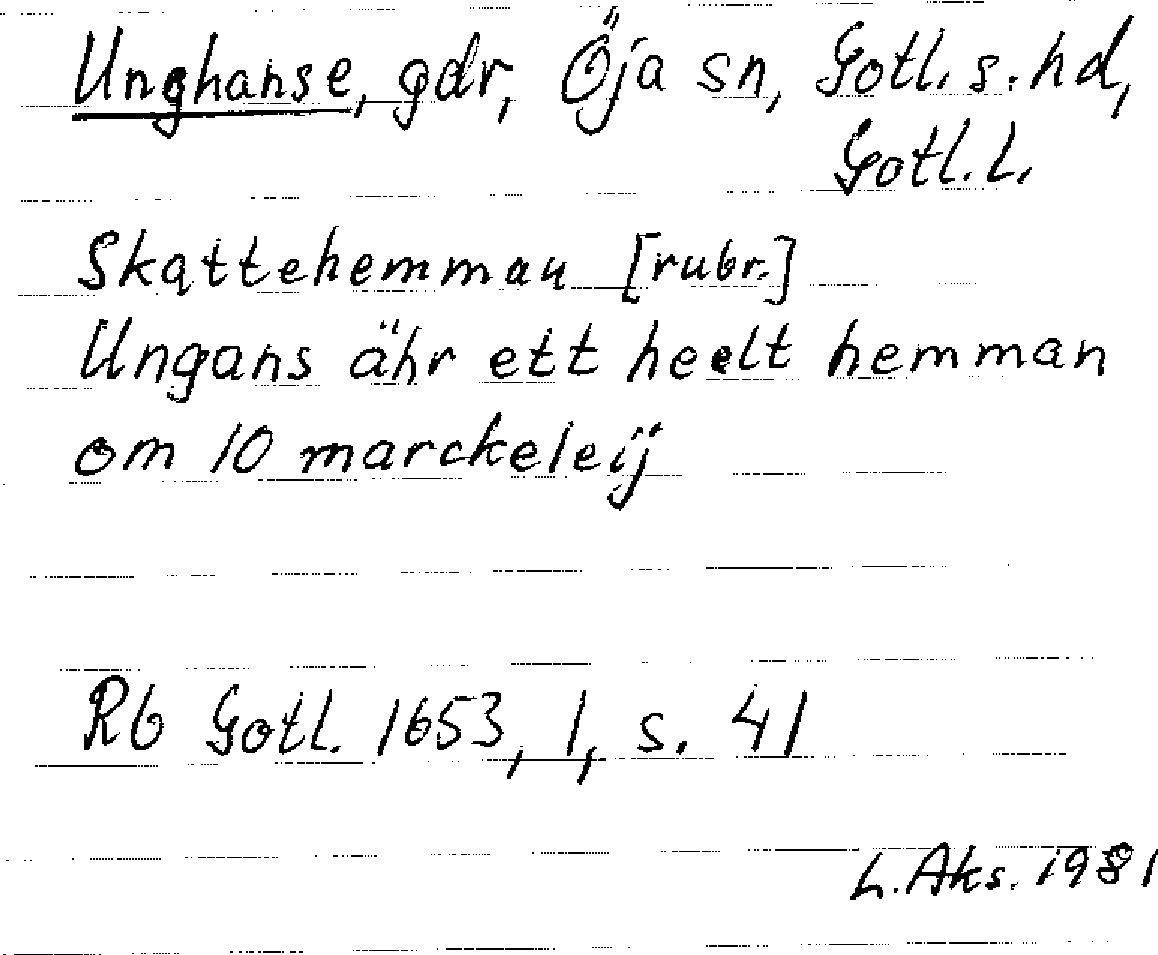 Unghanse, gdr, Öja sn, Gotl. s. hd,
Gotl. L.
Skattehemman [rubr.]
Ungans ähr ett heelt hemman
om 10 marckeleij
Rb Gotl. 1653, 1, s. 41
L. Aks. 1981